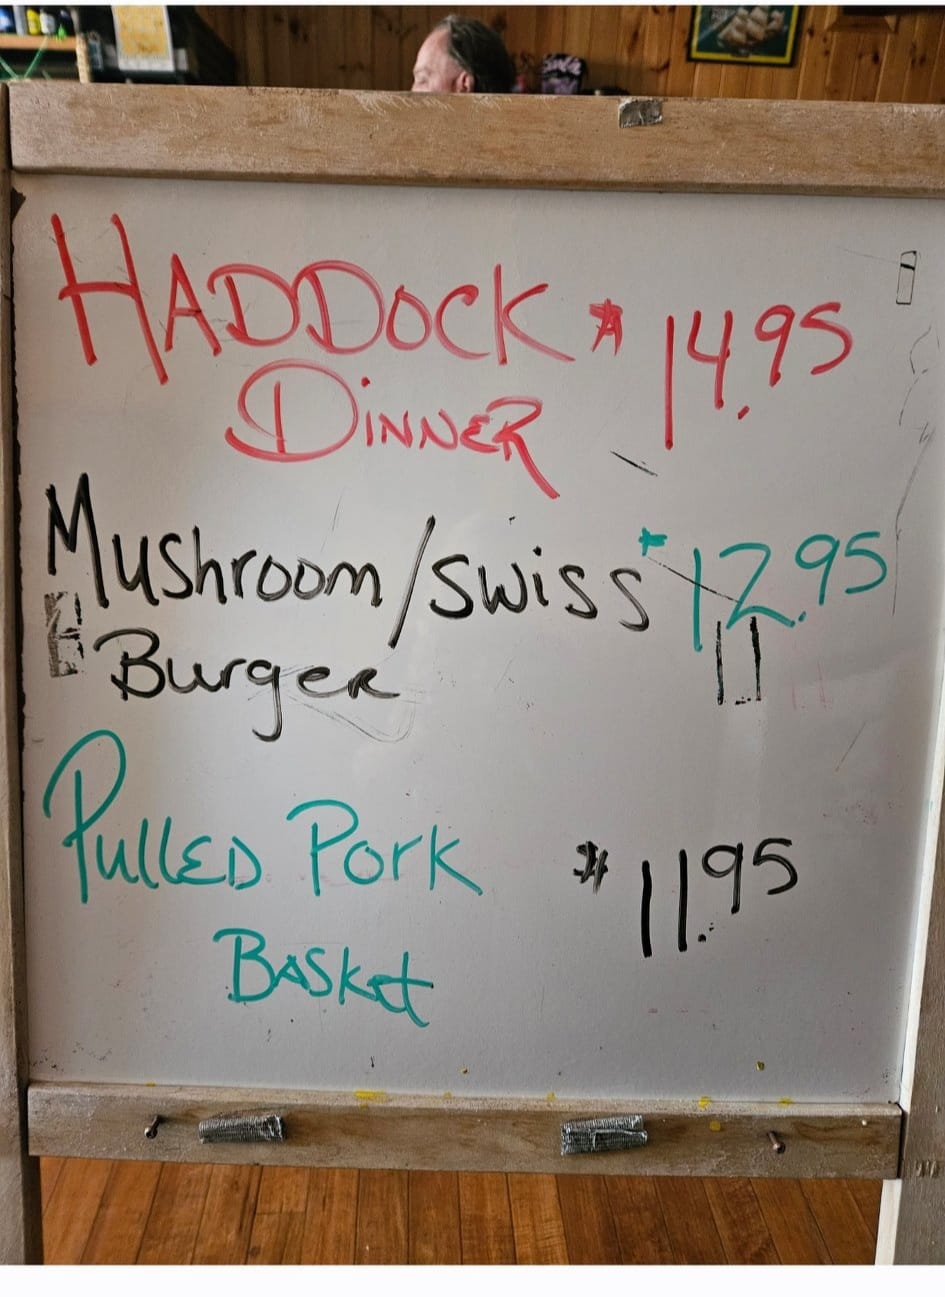 HADDOCK $14.95
DINNER
Mushroom/swiss $12.95
Burger
PULLED PORK $11.95
BASKET